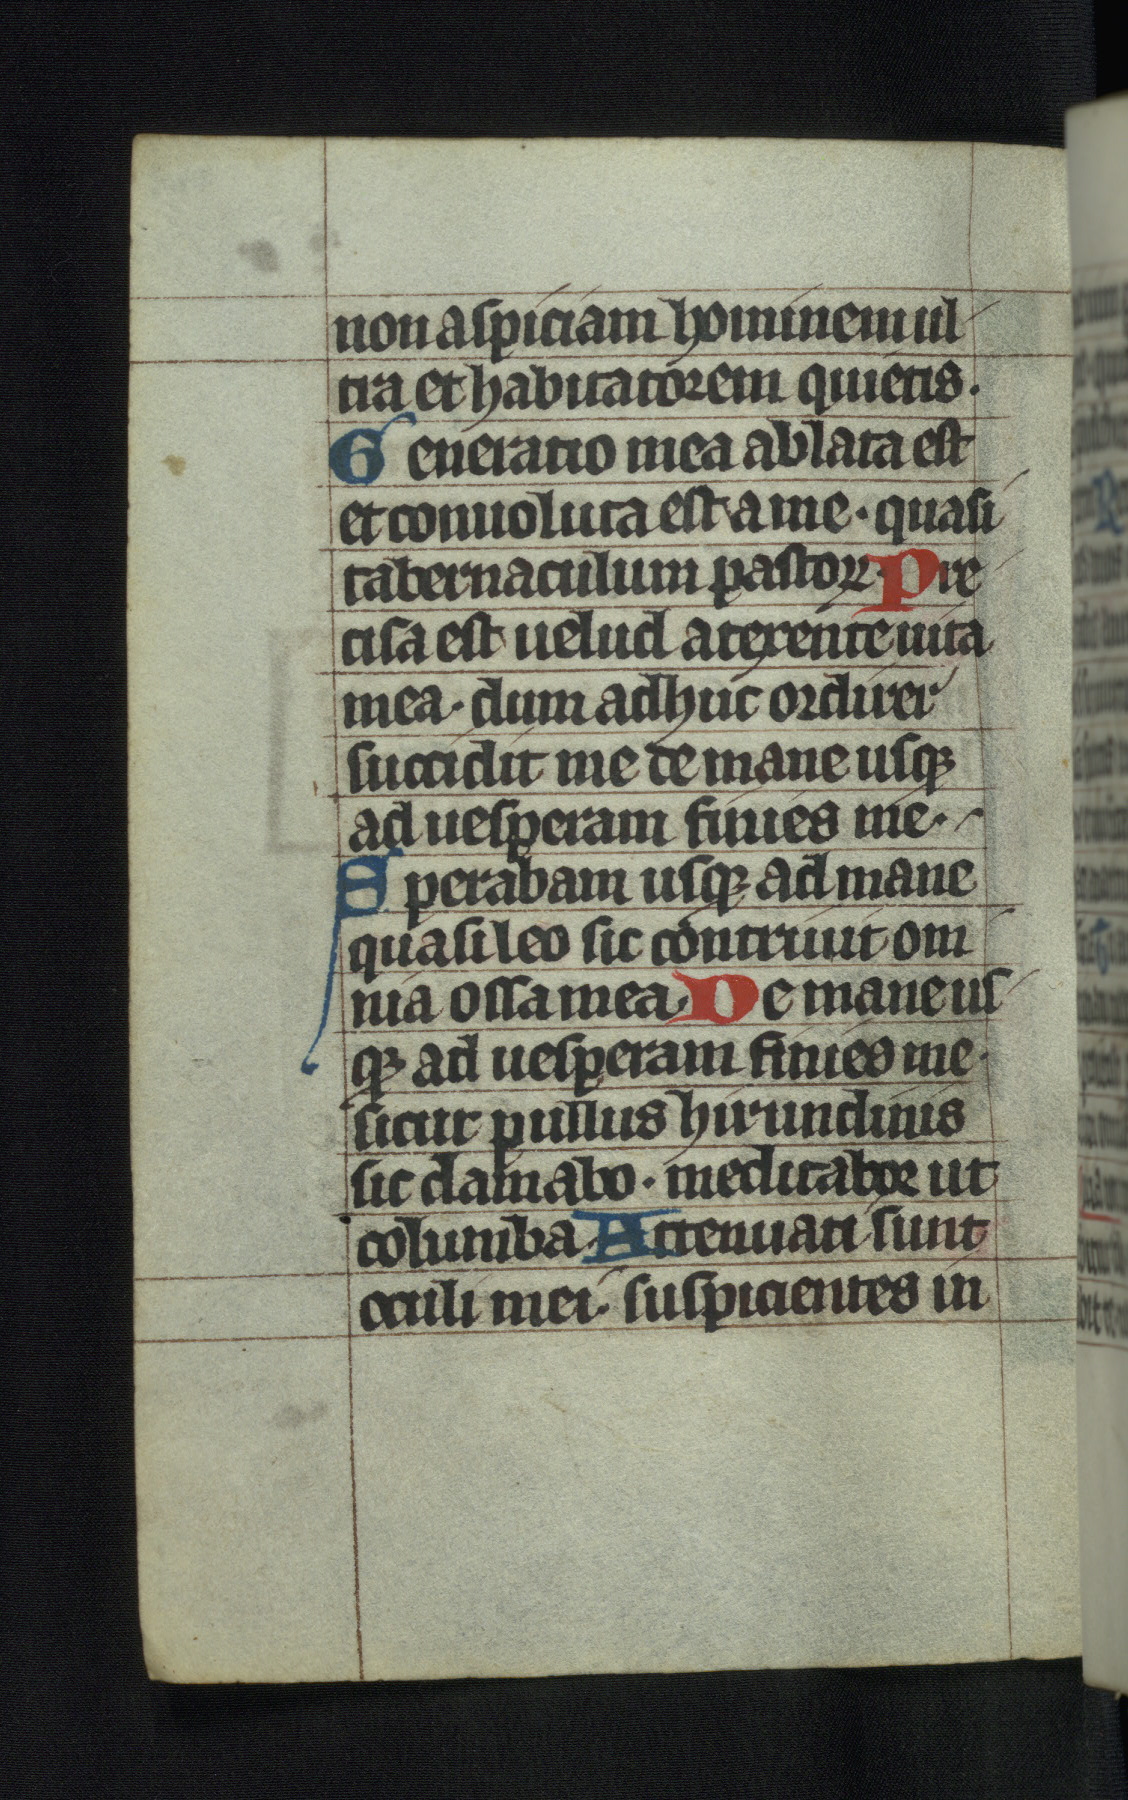 non aspiciam hominem ul
tra et habitatorem quietis.
Generatio mea ablata est
et conuoluta est a me. quasi
tabernaculum pastorꝝ. Pre
cisa est uelud a texente uita
mea. dum adhuc ordirer
succidit me de mane usqꝫ
ad uesperam finies me.
Sperabam usqꝫ ad mane
quasi leo sic contriuit om
nia ossa mea. De mane us
qꝫ ad uesperam finies me.
sicut pullus hirundinis
sic clamabo. meditabor ut
columba. Attenuati sunt
oculi mei. suspicientes in